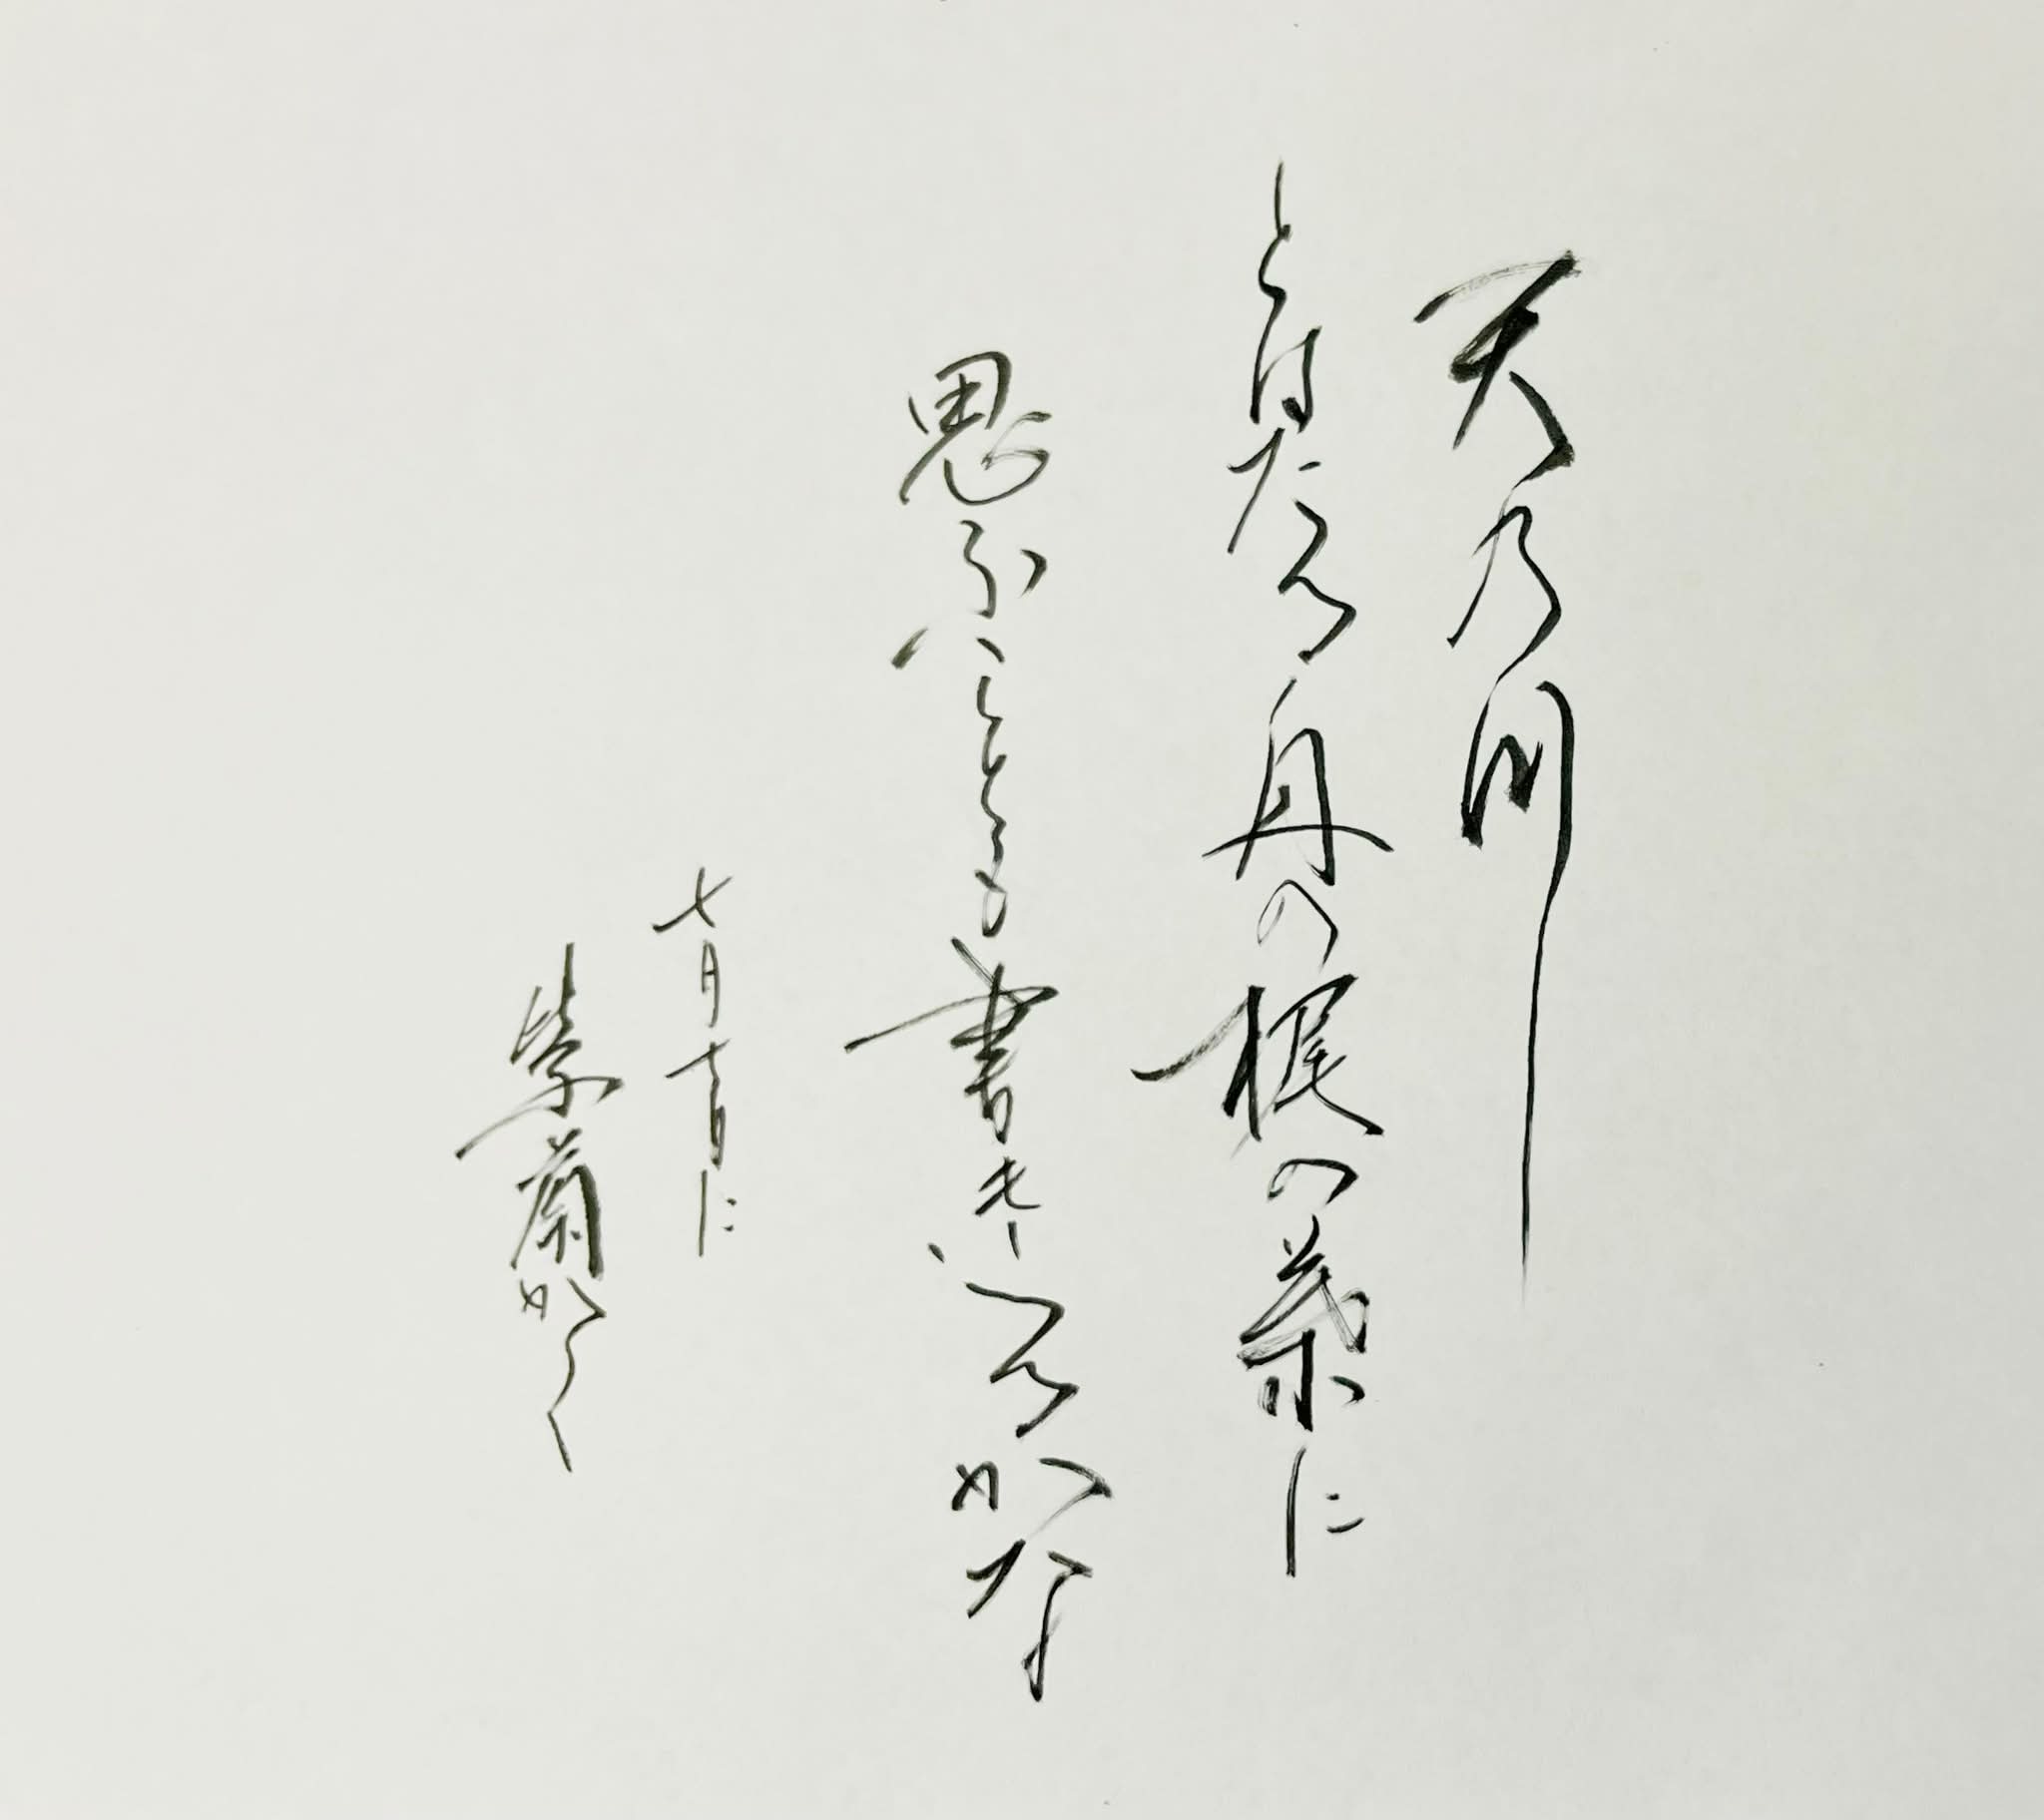 天乃川
とわたる舟の梶の葉に
思ふことも書きつくるかな
七月七日に
紫蘭かく